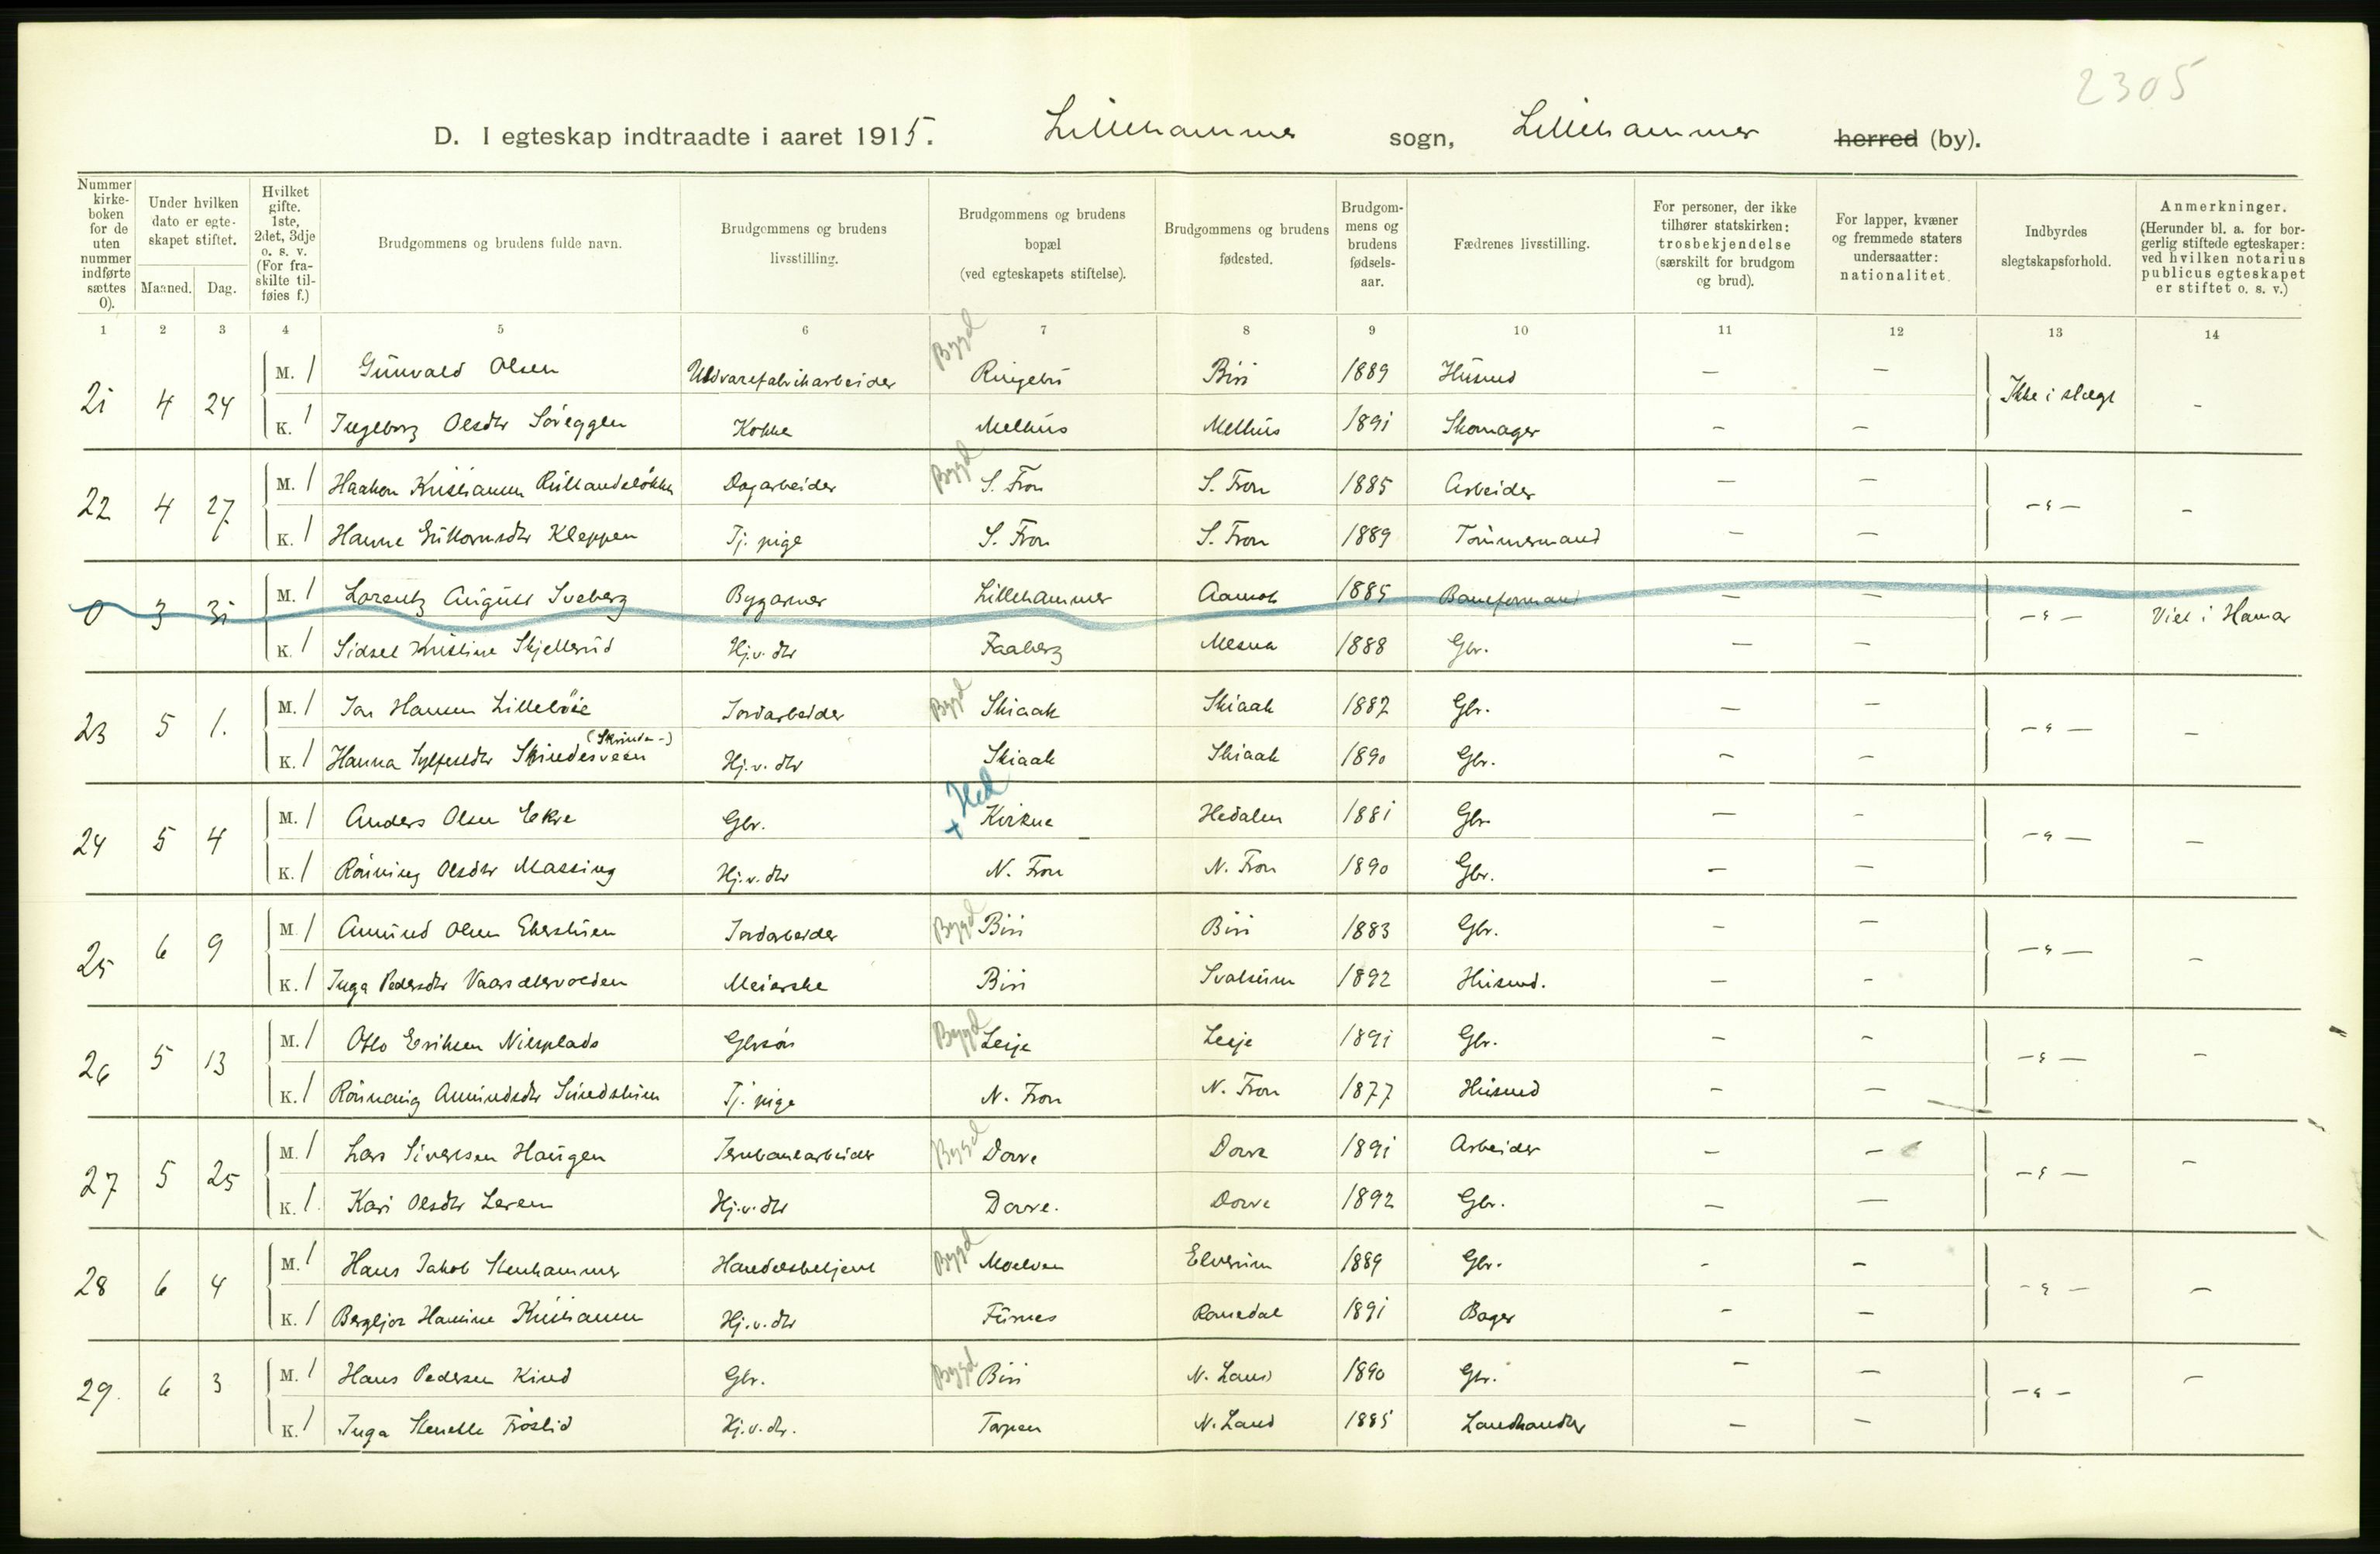 2305
D. I egteskap indtraadte i aaret 1915. Lillehammer sogn, Lillehammer herred (by).
Nummer kirke-boken for de uten nummer indførte sættes 0).
Under hvilken dato er egte-skapet stiftet.
Maaned. Dag.
Hvilket gifte. 1ste, 2det, 3dje o. s. v. (For fra-skilte til-føies f.)
Brudgommens og brudens fulde navn.
Brudgommens og brudens livsstilling.
Brudgommens og brudens bopæl (ved egteskapets stiftelse).
Brudgommens og brudens fødested.
Brudgom-mens og brudens fødsels-aar.
Fædrenes livsstilling.
For personer, der ikke tilhører statskirken: trosbekjendelse (særskilt for brudgom og brud).
For lapper, kvæner og fremmede staters undersaatter: nationalitet.
Indbyrdes slegtskapsforhold.
Anmerkninger. (Herunder bl. a. for bor-gerlig stiftede egteskaper: ved hvilken notarius publicus egteskapet er stiftet o. s. v.)
1 2 3 4 5 6 7 8 9 10 11 12 13 14
21 4 24 M. 1 Gunvald Olsen Uldvarefabrikarbeider Bygd Ringebu Biri 1889 Husmd — — Ikke i slægt -
K. 1 Ingeborg Olsdtr Søreggen Kokke Melhus Melhus 1891 Skomager - —
22 4 27 M. 1 Haakon Kristiansen Dagarbeider Bygd S. Fron S. Fron 1885 Arbeider — — —"— -
K. 1 Hanne Guttormsdtr Kleppen Tj. pige S. Fron S. Fron 1889 Tømmermand — —
0 3 31 M. 1 Lorentz August Sveberg Bygartner Lillehammer Aamot 1885 Baneformand — — —"— Viet i Hamar
K. 1 Sidsel Kristine Skjellerud Hj.v. dtr Faaberg Mesna 1888 Gbr. — —
23 5 1. M. 1 Jon Hansen Lillebøie Jordarbeider Bygd Skiaak Skiaak 1887 Gbr. — — —"— -
(Skrinde-)
K. 1 Hanna Sylfestdtr Skindesveen Hj.v. dtr Skiaak Skiaak 1890 Gbr. - —
24 5 4 M. 1 Anders Olsen Ekre Gbr. + Hed Kvikne Hedalen 1881 Gbr — - —"— —
K. 1 Rønnaug Olsdtr Massing Hj.v. dtr N. Fron N. Fron 1890 Gbr. — —
25 6 9 M. 1 Amund Olsen Jordarbeider Bygd Biri Biri 1883 Gbr. - — —"— -
K. 1 Inga Pedersdtr Meierske Biri Svatsum 1892 Husmd. — -
26 5 13 M. 1 Otto Eriksen Nisteplads Gbrsøn Bygd Lesje Lesje 1891 Gbr. - - —"— —
K. 1 Rønnaug Amundsdtr Sundsheim Tj. pige N. Fron N. Fron 1877 Husmd - —
27 5 25 M. 1 Lars Sivertsen Haugen Jernbanearbeider Bygd Dovre Dovre 1891 Arbeider — — —"— —
K. 1 Kari Olsdtr Hj.v. dtr Dovre. Dovre 1892 Gbr. — —
28 6 4 M. 1 Hans Jakob Stenhammer Handelsbetjent Bygd Moelven Elverum 1889 Gbr. - — -"- —
K. 1 Bergljot Hansine Kristiansen Hj.v. dtr Furnes Romedal 1891 Bager - —
29. 6 3 M. 1 Hans Pedersen Kind Gbr. Bygd Biri N. Land 1890 Gbr. - — —"- —
K. 1 Inga Frøslid Hj.v. dtr. Torpen N. Land 1885 Landhandler — —